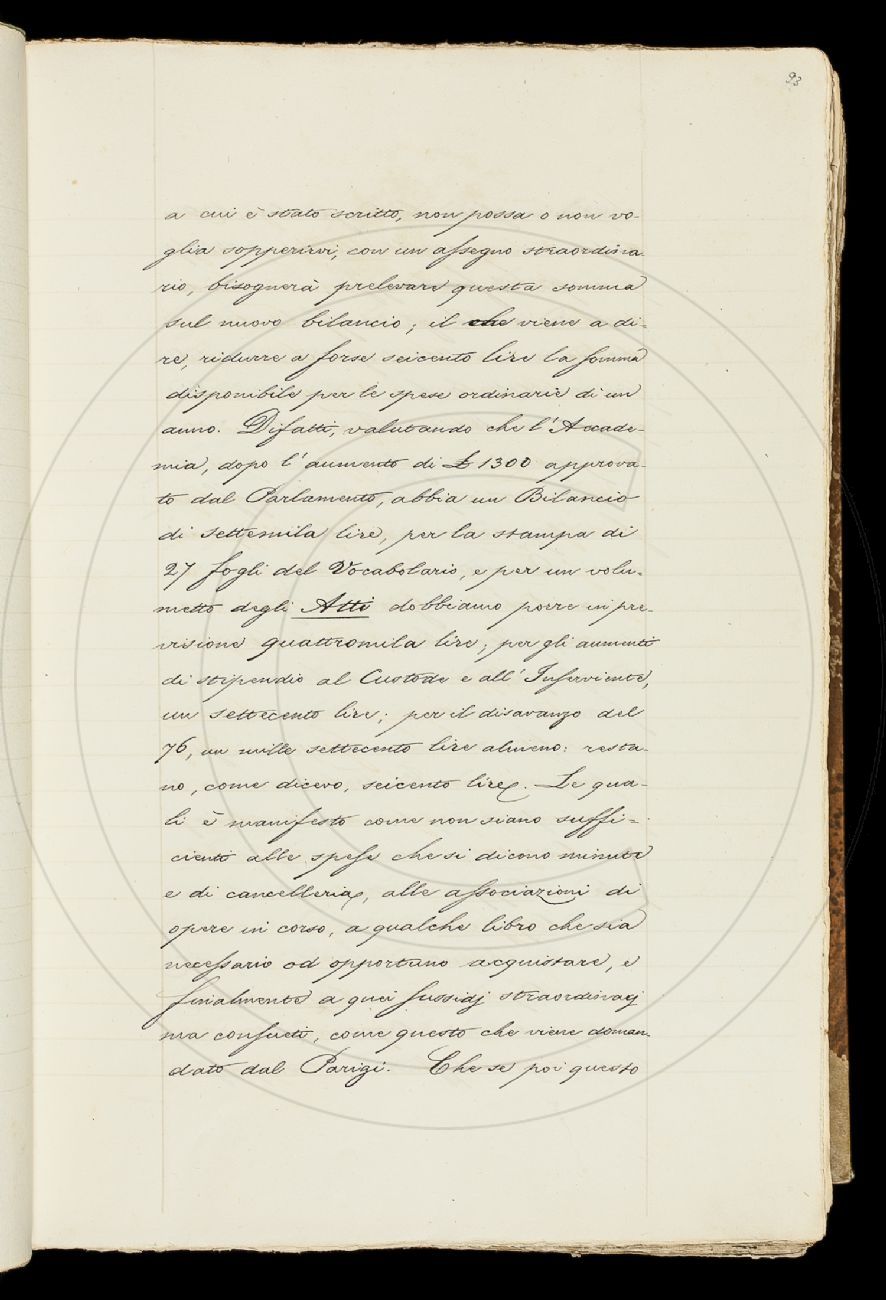 93
a cui è stato scritto, non possa o non vo-
glia sopperirvi, con un assegno straordina-
rio, bisognerà prelevare questa somma
sul nuovo bilancio; il che viene a di-
re, ridurre a forse seicento lire la somma
disponibile per le spese ordinarie di un
anno. Difatti, valutando che l'Accade-
mia, dopo l'aumento di £ 1300 approva-
to dal Parlamento, abbia un Bilancio
di settemila lire, per la stampa di
27 fogli del Vocabolario, e per un volu-
metto degli Atti dobbiamo porre in pre-
visione quattromila lire; per gli aumenti
di stipendio al Custode e all'Inserviente,
un settecento lire; per il disavanzo del
76, un mille settecento lire almeno: resta-
no, come dicevo, seicento lire. Le qua-
li è manifesto come non siano suffi-
cienti alle spese che si dicono minute
e di cancelleria, alle associazioni di
opere in corso, a qualche libro che sia
necessario od opportuno acquistare, e
finalmente a quei sussidj straordinarj
ma consueti, come questo che viene doman-
dato dal Parigi. Che se poi questo